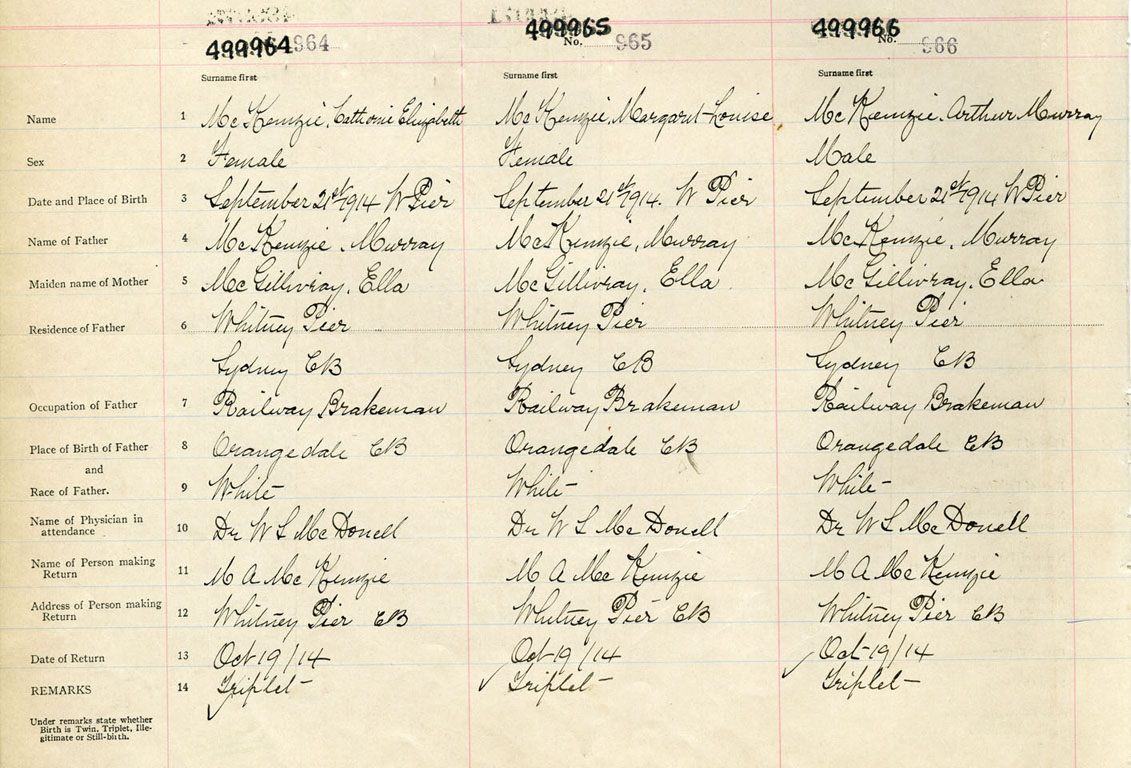 499964 964 499965 No. 965 499966 No. 966
Surname first Surname first Surname first
Name 1 McKenzie, Catherine Elizabeth McKenzie, Margaret Louise McKenzie, Arthur Murray
Sex 2 Female Female Male
Date and Place of Birth 3 September 21st 1914 W Pier September 21st 1914. W Pier September 21st 1914 W Pier
Name of Father 4 McKenzie, Murray McKenzie, Murray McKenzie, Murray
Maiden name of Mother 5 McGillivray, Ella McGillivray, Ella McGillivray, Ella
Residence of Father 6 Whitney Pier Whitney Pier Whitney Pier
Sydney CB Sydney CB Sydney CB
Occupation of Father 7 Railway Brakeman Railway Brakeman Railway Brakeman
Place of Birth of Father 8 Orangedale CB Orangedale CB Orangedale CB
and
Race of Father. 9 White White White
Name of Physician in attendance 10 Dr W S McDonell Dr W S McDonell Dr W S McDonell
Name of Person making Return 11 M A McKenzie M A McKenzie M A McKenzie
Address of Person making Return 12 Whitney Pier CB Whitney Pier CB Whitney Pier CB
Date of Return 13 Oct 19/14 Oct 19/14 Oct 19/14
REMARKS 14 Triplet Triplet Triplet
Under remarks state whether
Birth is Twin, Triplet, Ille-
gitimate or Still-birth.